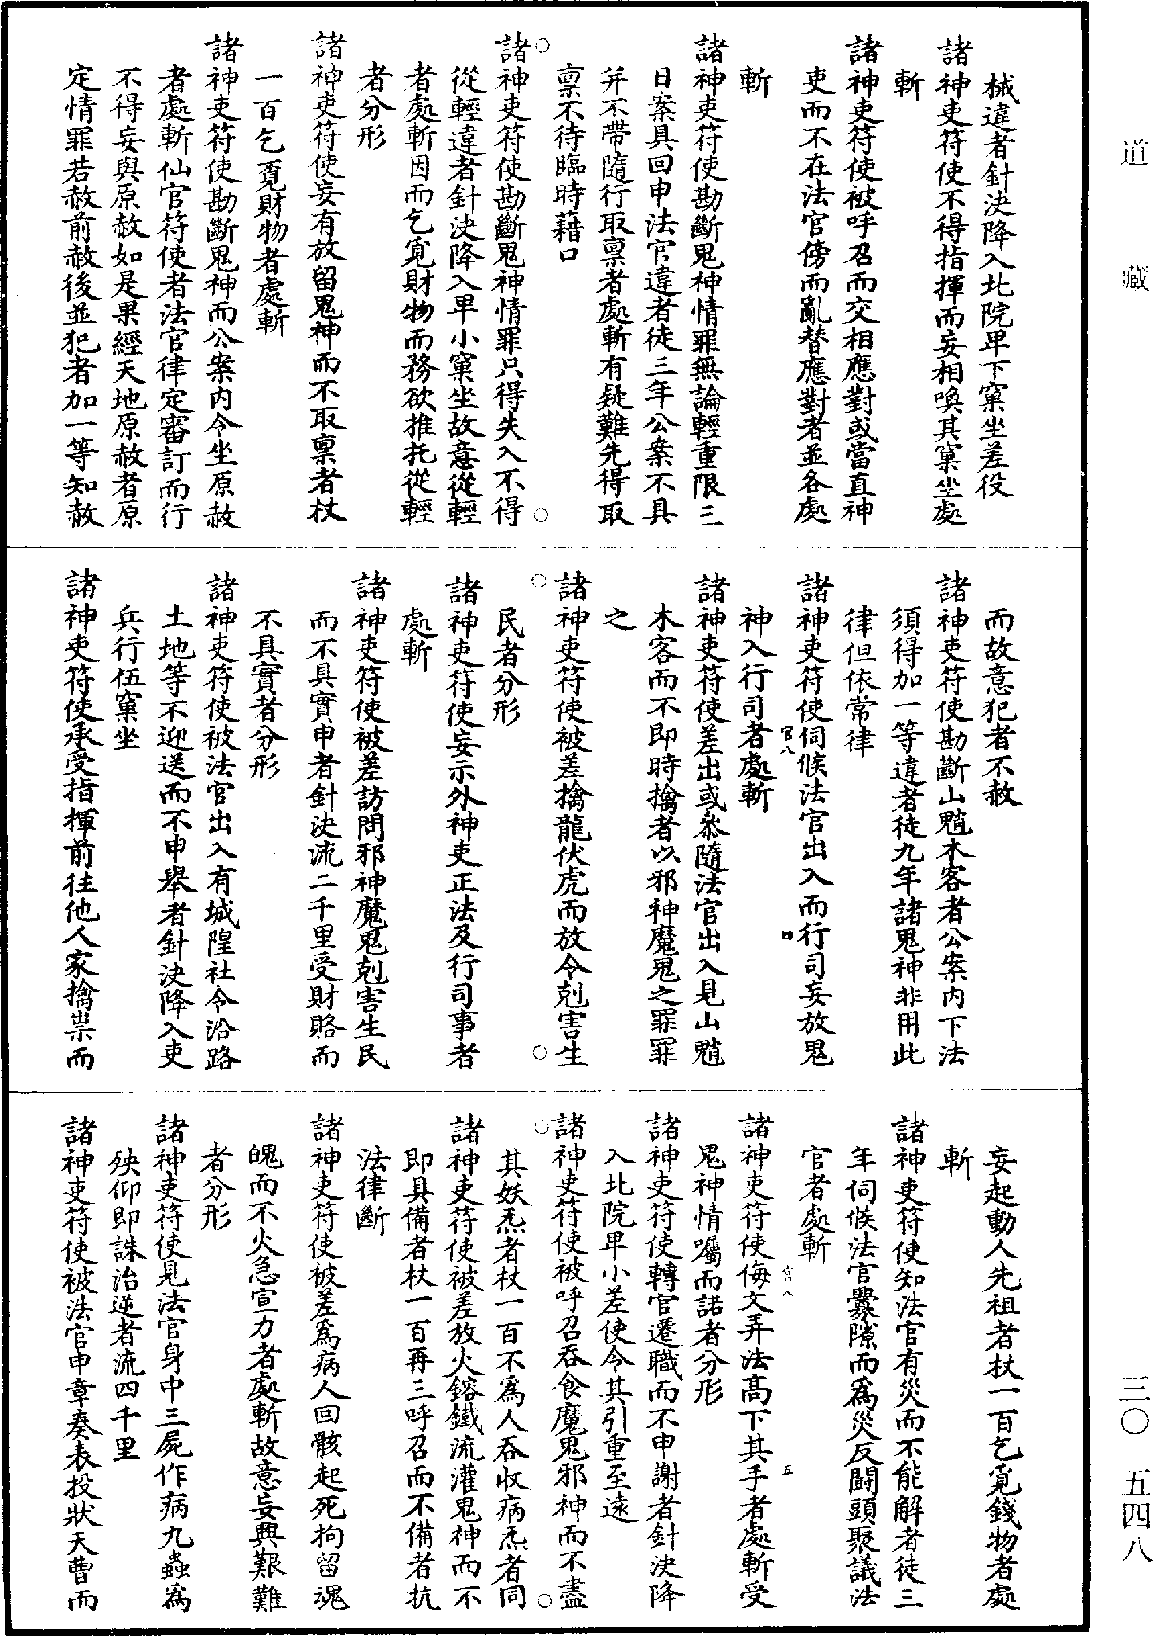 械違者針決降入北院卑下窠坐差役
諸神吏符使不得指揮而妄相喚其窠坐處
斬
諸神吏符使被呼召而交相應對或當直神
吏而不在法官傍而亂替應對者並各處
斬
諸神吏符使勘斷鬼神情罪無論輕重限三
日案具回申法官違者徒三年公案不具
并不帶隨行取禀者處斬有疑難先得取
禀不待臨時藉口
諸神吏符使勘斷鬼神情罪只得失入不得
從輕違者針決降入卑小窠坐故意從輕
者處斬因而乞覓財物而務欲推托從輕
者分形
諸神吏符使妄有放留鬼神而不取禀者杖
一百乞覓財物者處斬
諸神吏符使勘斷鬼神而公案內令坐原赦
者處斬仙官符使者法官律定審訂而行
不得妄與原赦如是果經天地原赦者原
定情罪若赦前赦後並犯者加一等知赦
而故意犯者不赦
諸神吏符使勘斷山魈木客者公案內下法
須得加一等違者徒九年諸鬼神非用此
律但依常律
諸神吏符使伺候法官出入而行司妄放鬼
神入行司者處斬
官八
四
諸神吏符使差出或參隨法官出入見山魈
木客而不即時擒者以邪神魔鬼之罪罪
之
諸神吏符使被差擒龍伏虎而放令剋害生
民者分形
諸神吏符使妄示外神吏正法及行司事者
處斬
諸神吏符使被差訪問邪神魔鬼剋害生民
而不具實申者針決流二千里受財賂而
不具實者分形
諸神吏符使被法官出入有城隍社令沿路
土地等不迎送而不申舉者針決降入吏
兵行伍窠坐
諸神吏符使承受指揮前往他人家擒祟而
妄起動人先祖者杖一百乞覓錢物者處
斬
諸神吏符使知法官有災而不能解者徒三
年伺候法官釁隙而為災反鬪頭聚議法
官者處斬
官八
五
諸神吏符使侮文弄法高下其手者處斬受
鬼神情囑而諾者分形
諸神吏符使轉官遷職而不申謝者針決降
入北院卑小差使令其引重至遠
諸神吏符使被呼召吞食魔鬼邪神而不盡
其妖炁者杖一百不為人吞收病炁者同
諸神吏符使被差放火鎔鐵流灌鬼神而不
即具備者杖一百再三呼召而不備者抗
法律斷
諸神吏符使被差為病人回骸起死拘留魂
魄而不火急宣力者處斬故意妄興艱難
者分形
諸神吏符使見法官身中三屍作病九蟲為
殃仰即誅治逆者流四千里
諸神吏符使被法官申章奏表投狀天曹而
道藏
三〇
五四八